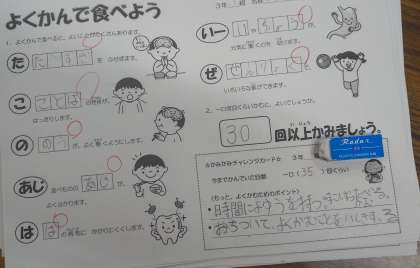 よくかんで食べよう
3年 組 名前
1、よくかんで食べると、よいことがたくさんあります。
た たべすぎ を ふせぎます。
こ ことば の発音が、
はっきりします。
の のう が、よく働くようにします。
あじ 食べものの あじ が、
よく分かります。
は は の病気に かかりにくくします。
いー
元気に働くのを 助けます。
ぜ ぜんりょく で
いろいろな事ができます。
2、一口何回くらいかむと、よいでしょうか。
30 回以上かみましょう。
Radar
☆かみかみチャレンジカード☆ 3年
今までかんでいた回数 一口(35)回くらい
(もっと、よくかむためのポイント)
・時間によゆうを持つ
・おちついて、よくかむことをいしきする